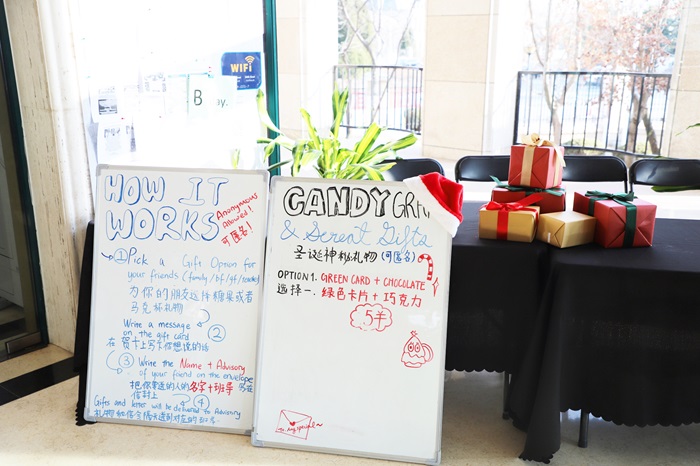 WiFi
HOW IT
WORKS
Anonymous
Allowed!
可匿名!
① Pick a Gift Option for
your friends (family/bf/gf/teacher)
为你的朋友选择糖果或者
马克杯礼物
Write a message ②
on the gift card
在贺卡上写下你想说的话
③ Write the Name + Advisory
of your friend on the envelope
把你要送的人的名字+班导写在
信封上
④
Gifts and letter will be delivered to Advisory
CANDY GRA
& Secret Gifts
圣诞神秘礼物 (可匿名)
OPTION 1. GREEN CARD + CHOCOLATE
选择一. 绿色卡片 + 巧克力
5¥